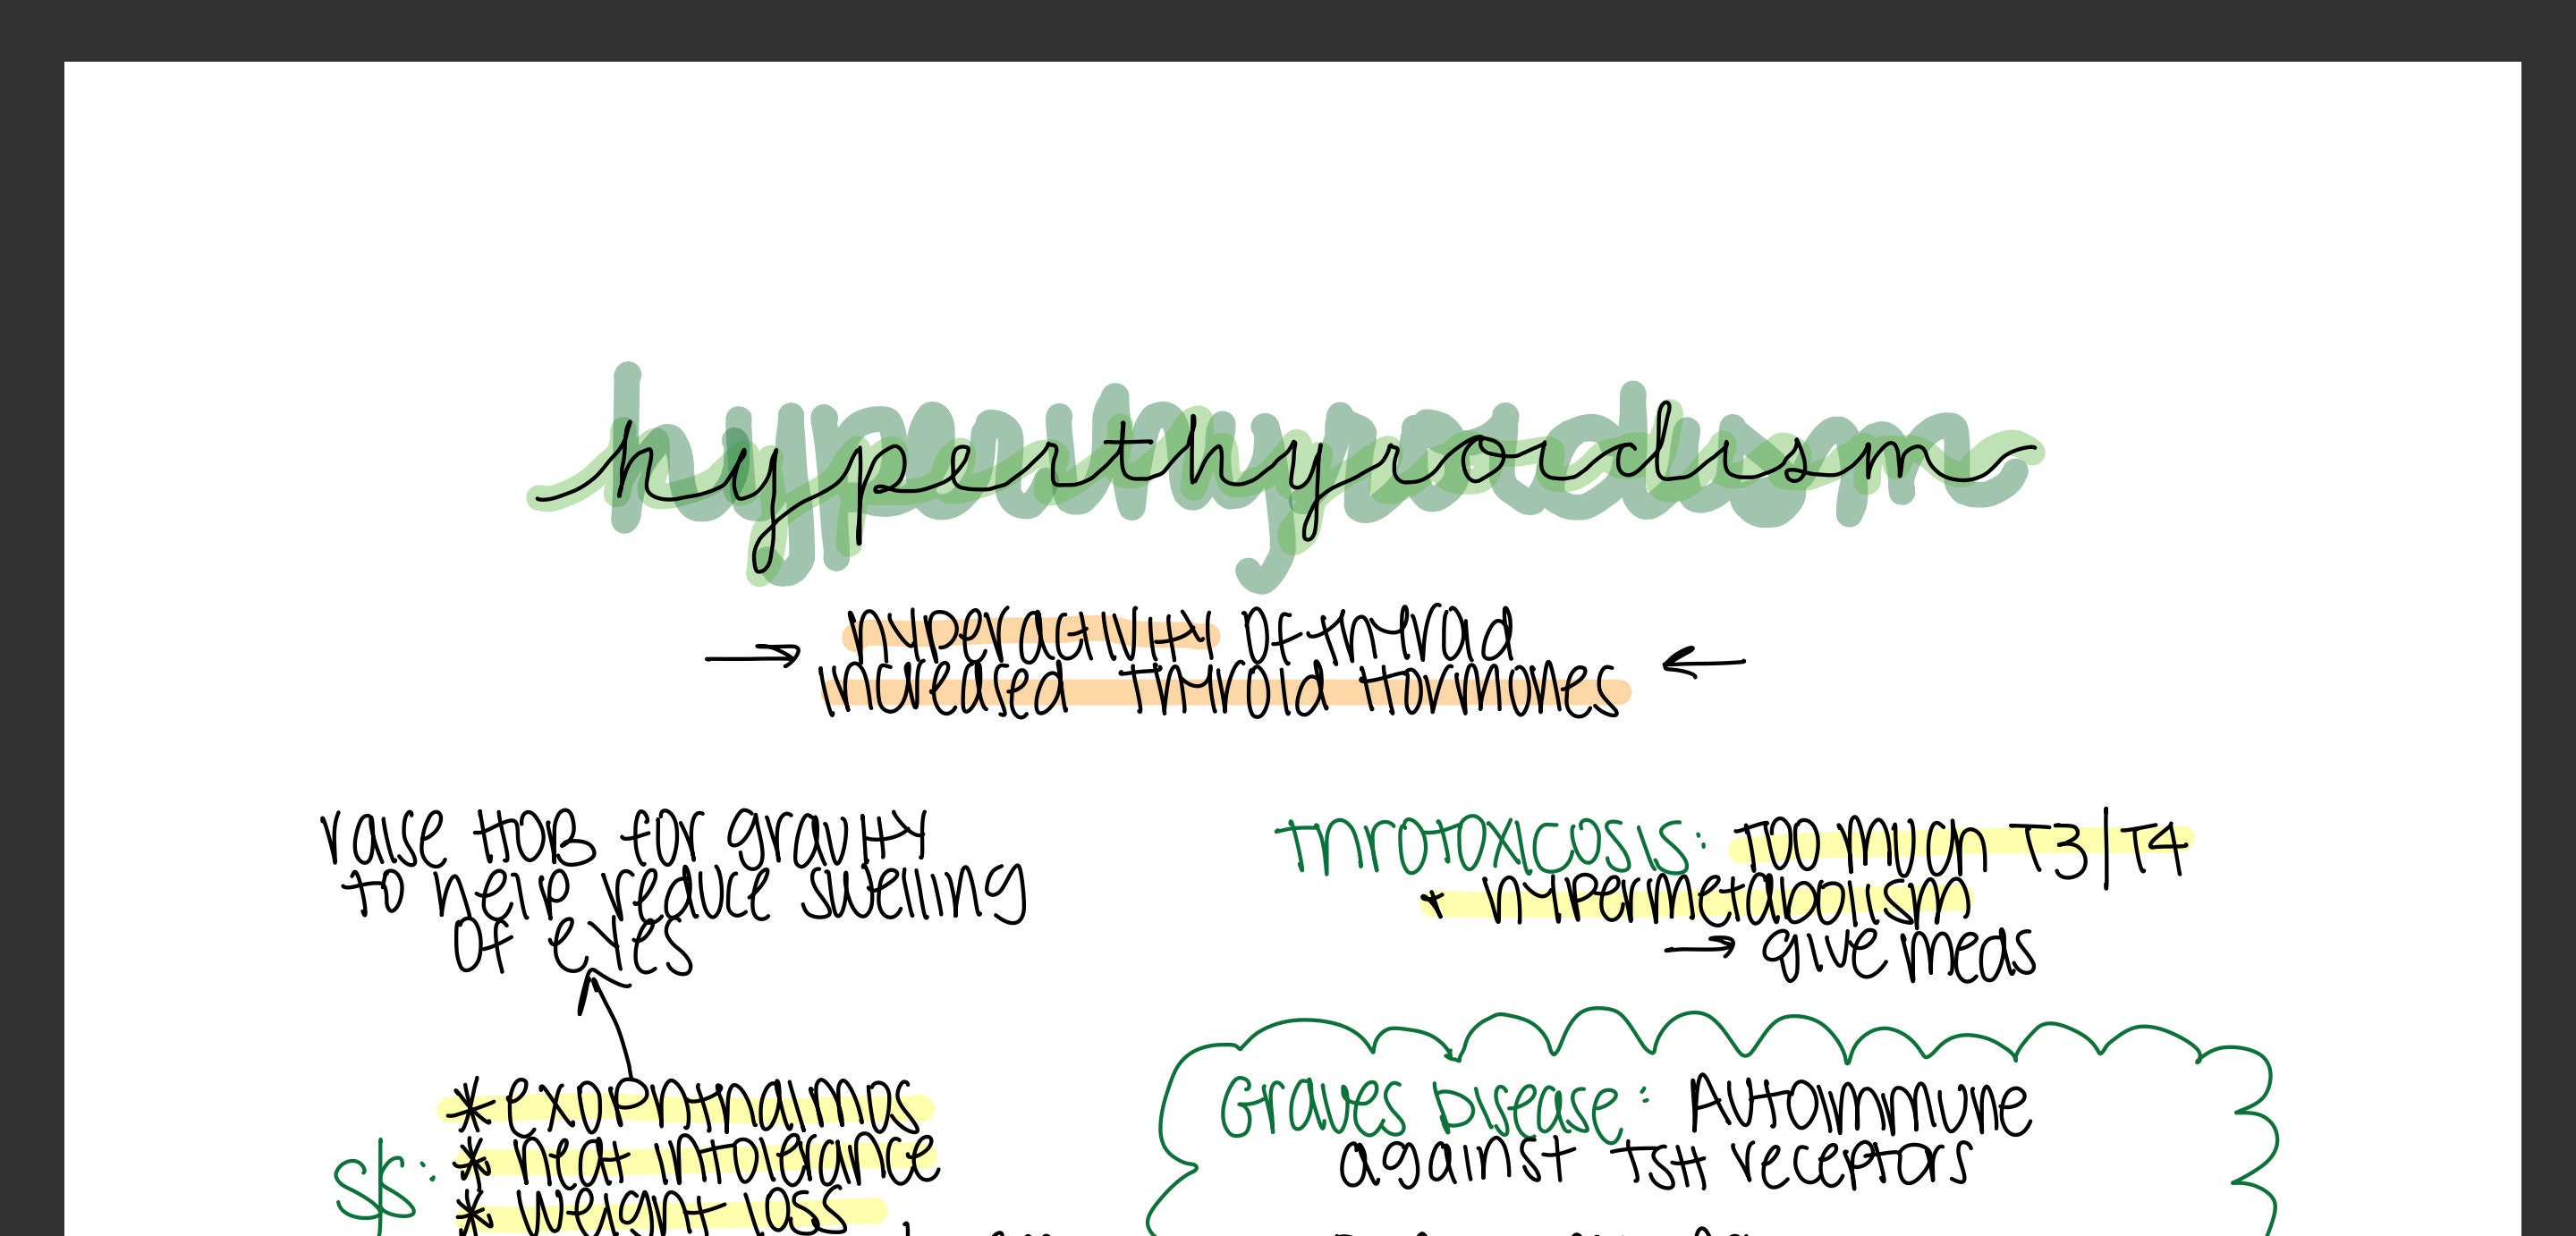 hyperthyroidism
→ hyperactivity of thyroid ←
increased thyroid hormones
raise HOB for gravity
to help reduce swelling
of eyes
* exophthalmos
S/S: * heat intolerance
* weight loss
thyrotoxicosis: too much T3/T4
* hypermetabolism
→ give meds
Graves Disease: Autoimmune
against TSH receptors